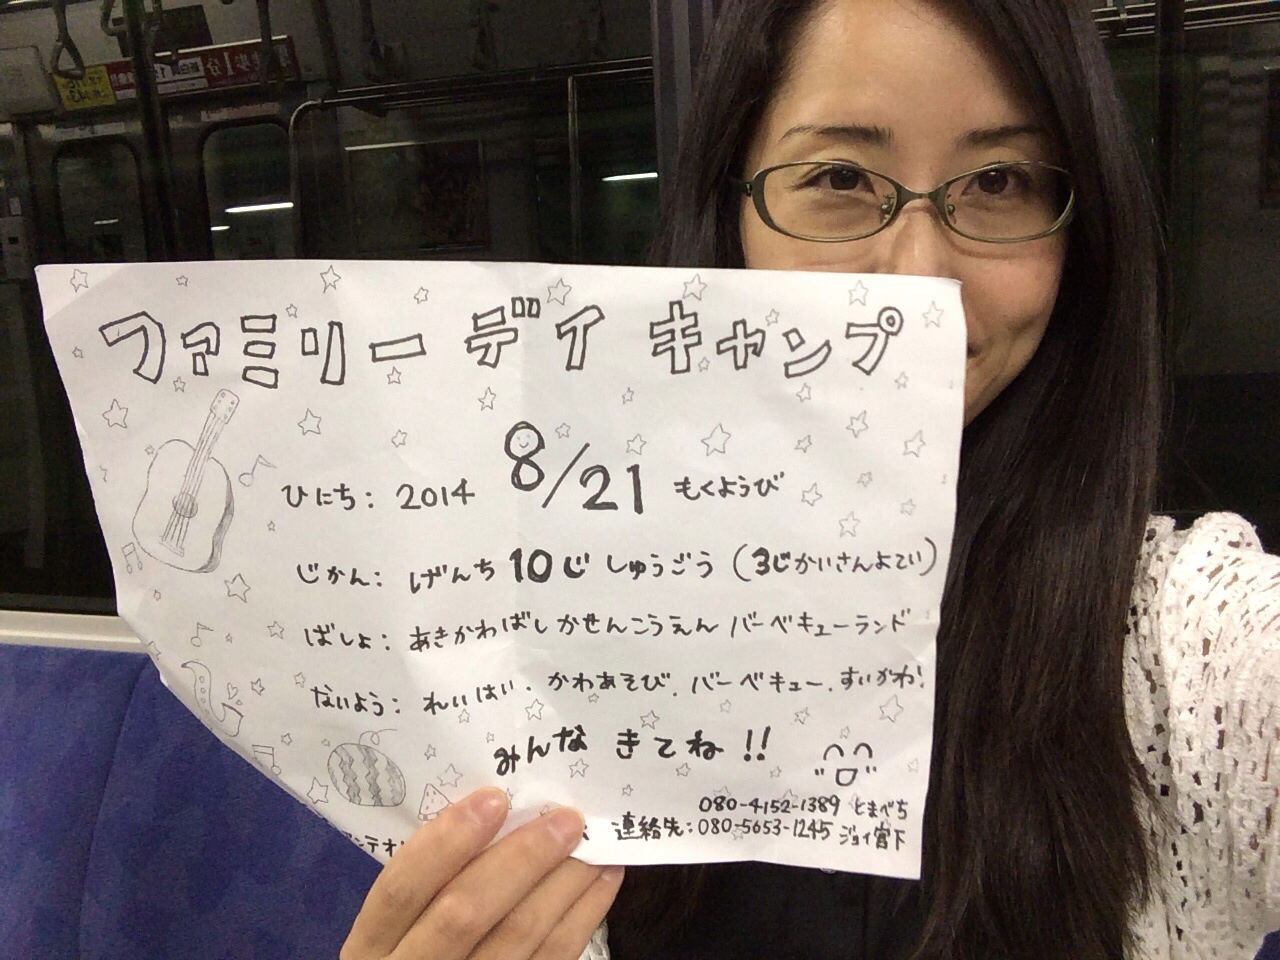 ファミリー デイ キャンプ
ひにち: 2014 8/21 もくようび
じかん: げんち 10じ しゅうごう (3じかいさんよてい)
ばしょ: あきかわばしかせんこうえん バーベキューランド
ないよう: れいはい. かわあそび. バーベキュー. すいかわ!
みんな きてね!!
080-4152-1389 とまべち
連絡先:080-5653-1245 ジョイ宮下
ンテオ